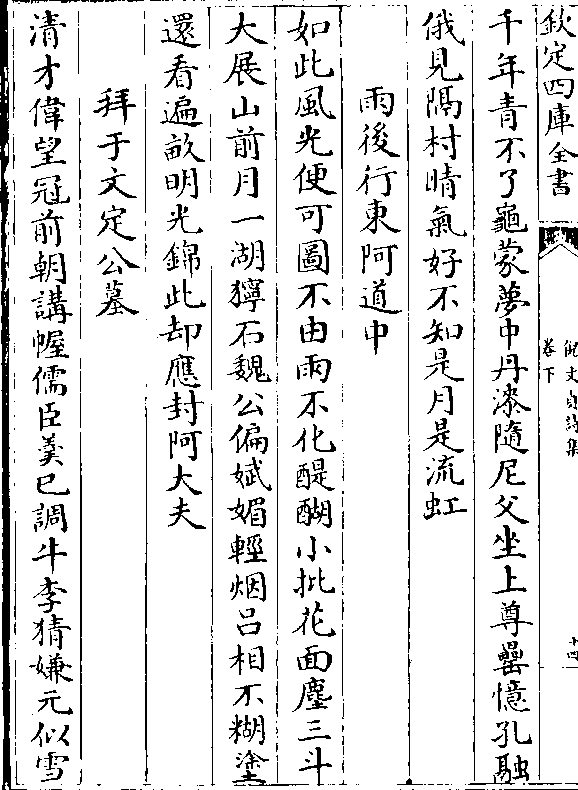 欽定四庫全書
倪文貞詩集
卷下
十四
千年青不了龜蒙夢中丹漆隨尼父坐上尊罍憶孔融
俄見隔村晴氣好不知是月是流虹
雨後行東阿道中
如此風光便可圖不由雨不化醍醐小批花面塵三斗
大展山前月一湖獰石魏公偏娬媚輕烟吕相不糊塗
還看遍畝明光錦此却應封阿大夫
拜于文定公墓
清才偉望冠前朝講幄儒臣羮已調牛李猜嫌元似雪